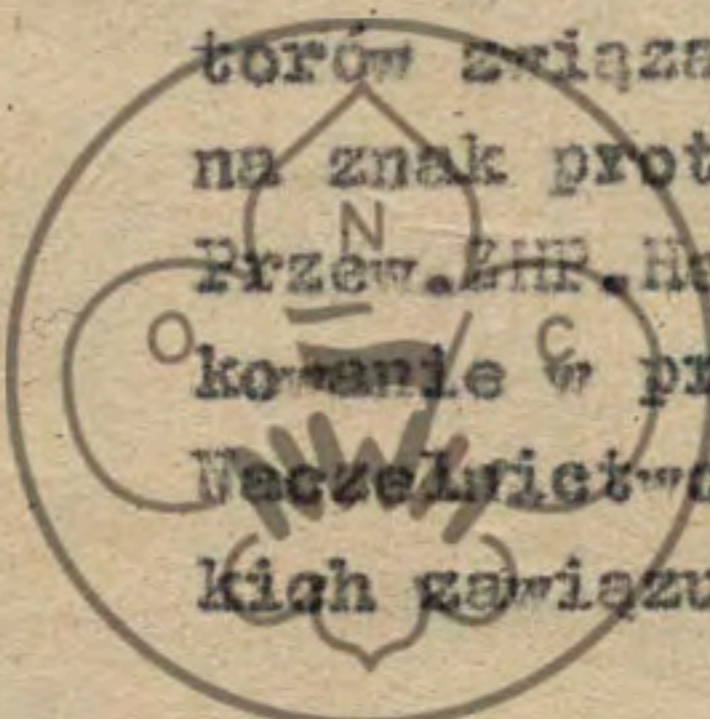 torów związa
na znak prot
Przew.ZHP.He
kowanie w pr
Naczelnictwo
kich zawiązu
N
O C